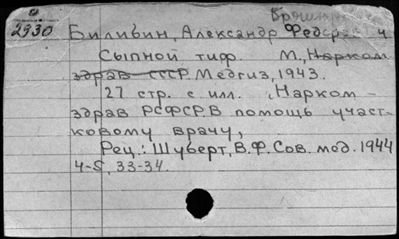 2930
Биливин, Александр Федоров
Сыпной тиф. М., Нарком
здрав СССР. Медгиз, 1943.
27 стр. с илл. Нарком-
здрав РСФСР. В помощь участ-
ковому врачу,
Рец.: Шуберт, В.Ф. Сов. мед. 1944
4-5, 33-34.